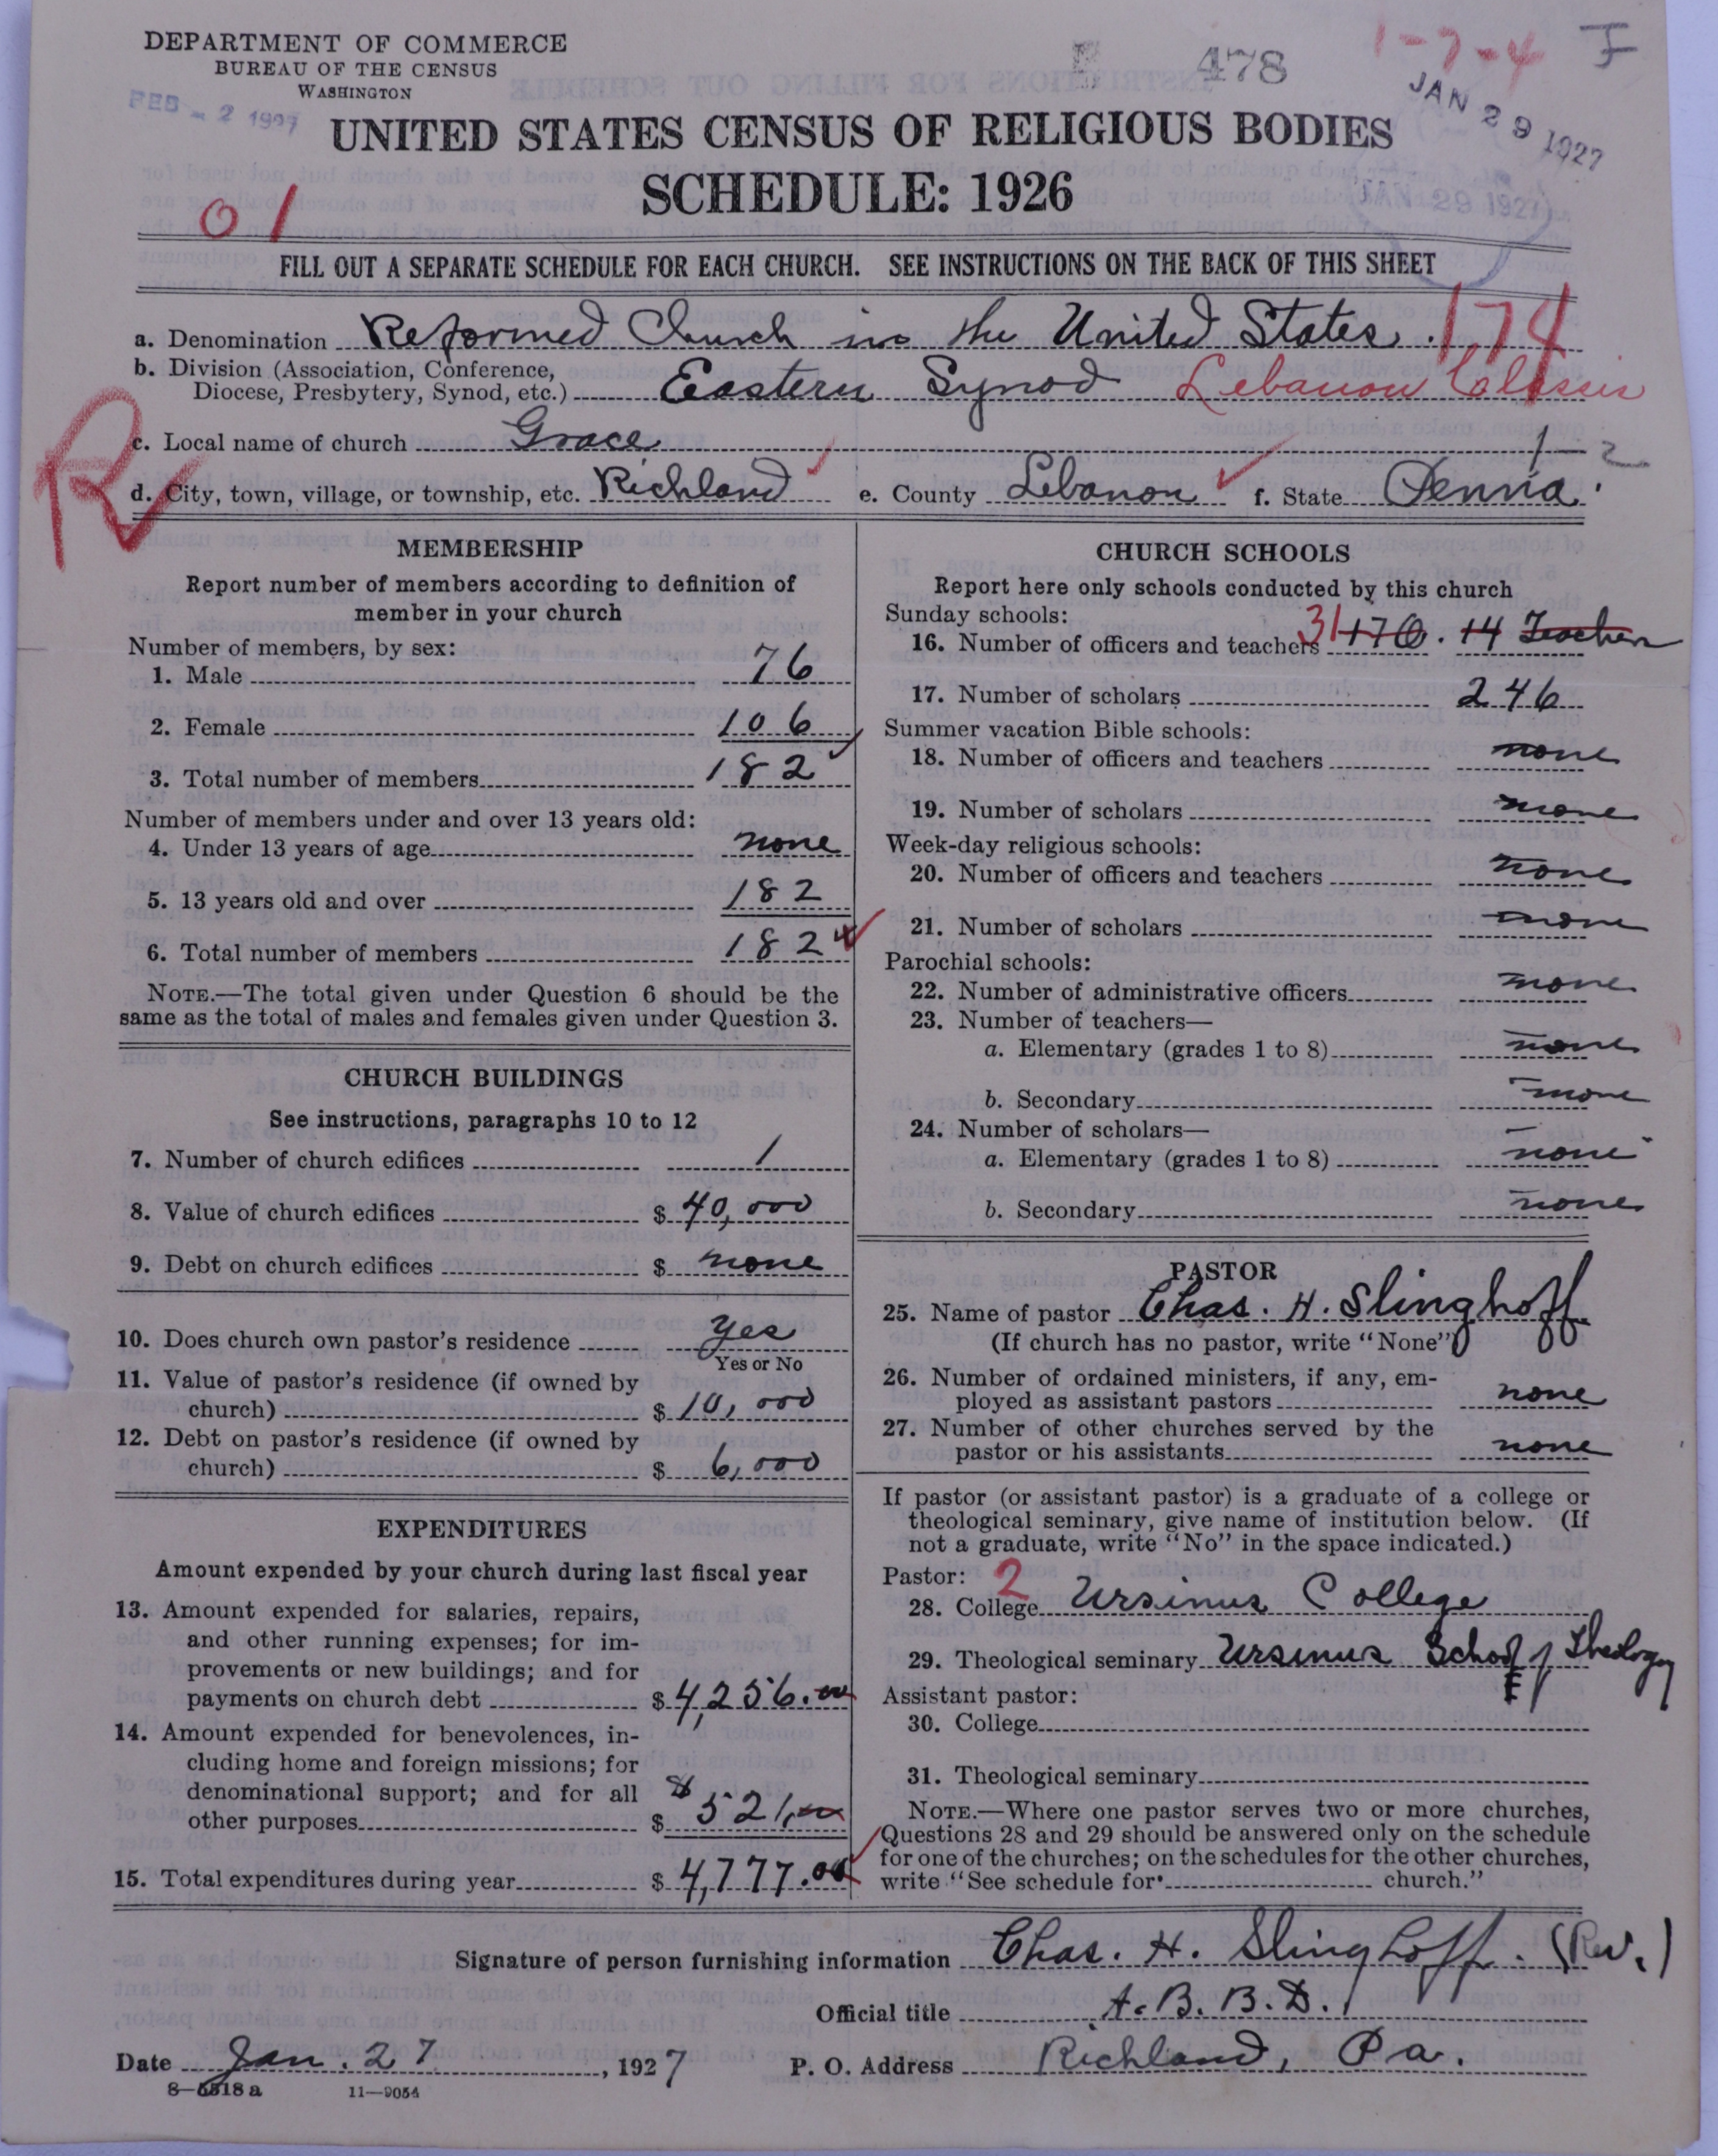 DEPARTMENT OF COMMERCE
BUREAU OF THE CENSUS
WASHINGTON
FEB - 2 1927
478
1-7-4
JAN 29 1927
JAN 29 1927
UNITED STATES CENSUS OF RELIGIOUS BODIES
SCHEDULE: 1926
01
FILL OUT A SEPARATE SCHEDULE FOR EACH CHURCH. SEE INSTRUCTIONS ON THE BACK OF THIS SHEET
a. Denomination Reformed Church in the United States. 174
b. Division (Association, Conference,
Diocese, Presbytery, Synod, etc.) Eastern Synod Lebanon Classis
R
c. Local name of church Grace
1-2
d. City, town, village, or township, etc. Richland e. County Lebanon f. State Penna.
MEMBERSHIP
Report number of members according to definition of
member in your church
Number of members, by sex:
1. Male 76
2. Female 106
3. Total number of members 182
Number of members under and over 13 years old:
4. Under 13 years of age none
5. 13 years old and over 182
6. Total number of members 182
NOTE.—The total given under Question 6 should be the
same as the total of males and females given under Question 3.
CHURCH BUILDINGS
See instructions, paragraphs 10 to 12
7. Number of church edifices 1
8. Value of church edifices $ 40,000
9. Debt on church edifices $ none
10. Does church own pastor's residence Yes
Yes or No
11. Value of pastor's residence (if owned by
church) $ 10,000
12. Debt on pastor's residence (if owned by
church) $ 6,000
EXPENDITURES
Amount expended by your church during last fiscal year
13. Amount expended for salaries, repairs,
and other running expenses; for im-
provements or new buildings; and for
payments on church debt $ 4,256.00
14. Amount expended for benevolences, in-
cluding home and foreign missions; for
denominational support; and for all
other purposes $ 521.00
15. Total expenditures during year $ 4,777.00
CHURCH SCHOOLS
Report here only schools conducted by this church
Sunday schools:
16. Number of officers and teachers 31 17 14 Teachers
17. Number of scholars 246
Summer vacation Bible schools:
18. Number of officers and teachers none
19. Number of scholars none
Week-day religious schools:
20. Number of officers and teachers none
21. Number of scholars none
Parochial schools:
22. Number of administrative officers none
23. Number of teachers—
a. Elementary (grades 1 to 8) none
b. Secondary none
24. Number of scholars—
a. Elementary (grades 1 to 8) none
b. Secondary none
PASTOR
25. Name of pastor Chas. H. Slinghoff
(If church has no pastor, write "None")
26. Number of ordained ministers, if any, em-
ployed as assistant pastors none
27. Number of other churches served by the
pastor or his assistants none
If pastor (or assistant pastor) is a graduate of a college or
theological seminary, give name of institution below. (If
not a graduate, write "No" in the space indicated.)
Pastor: 2
28. College Ursinus College
29. Theological seminary Ursinus School of Theology
Assistant pastor:
30. College
31. Theological seminary
NOTE.—Where one pastor serves two or more churches,
Questions 28 and 29 should be answered only on the schedule
for one of the churches; on the schedules for the other churches,
write "See schedule for church."
Signature of person furnishing information Chas. H. Slinghoff. (Rev.)
Official title A.B. B.D.
Date Jan. 27, 1927 P. O. Address Richland, Pa.
8—5518 a 11—9054